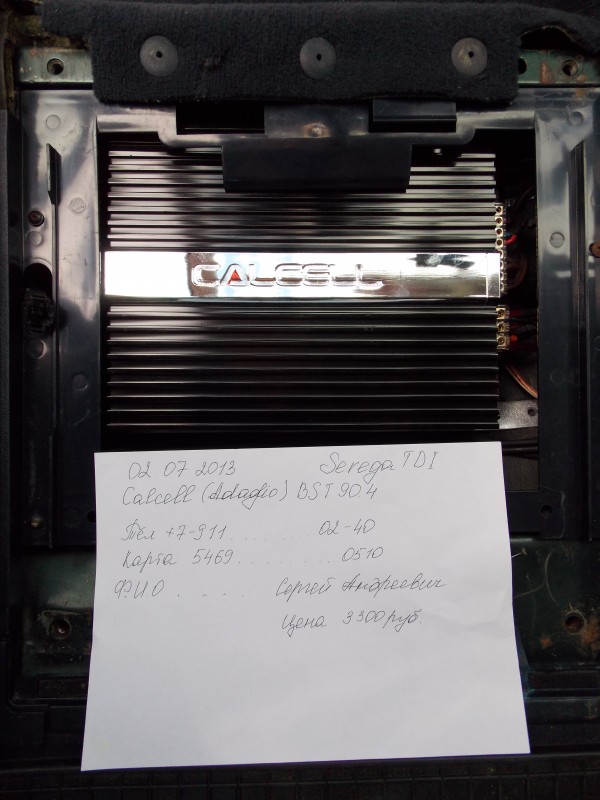 CALCELL
02 07 2013 Serega TDI
Calcell (Adagio) BST 90.4
Тел +7-911........02-40
Карта 5469........0510
ФИО .... Сергей Андреевич
Цена 3300 руб.